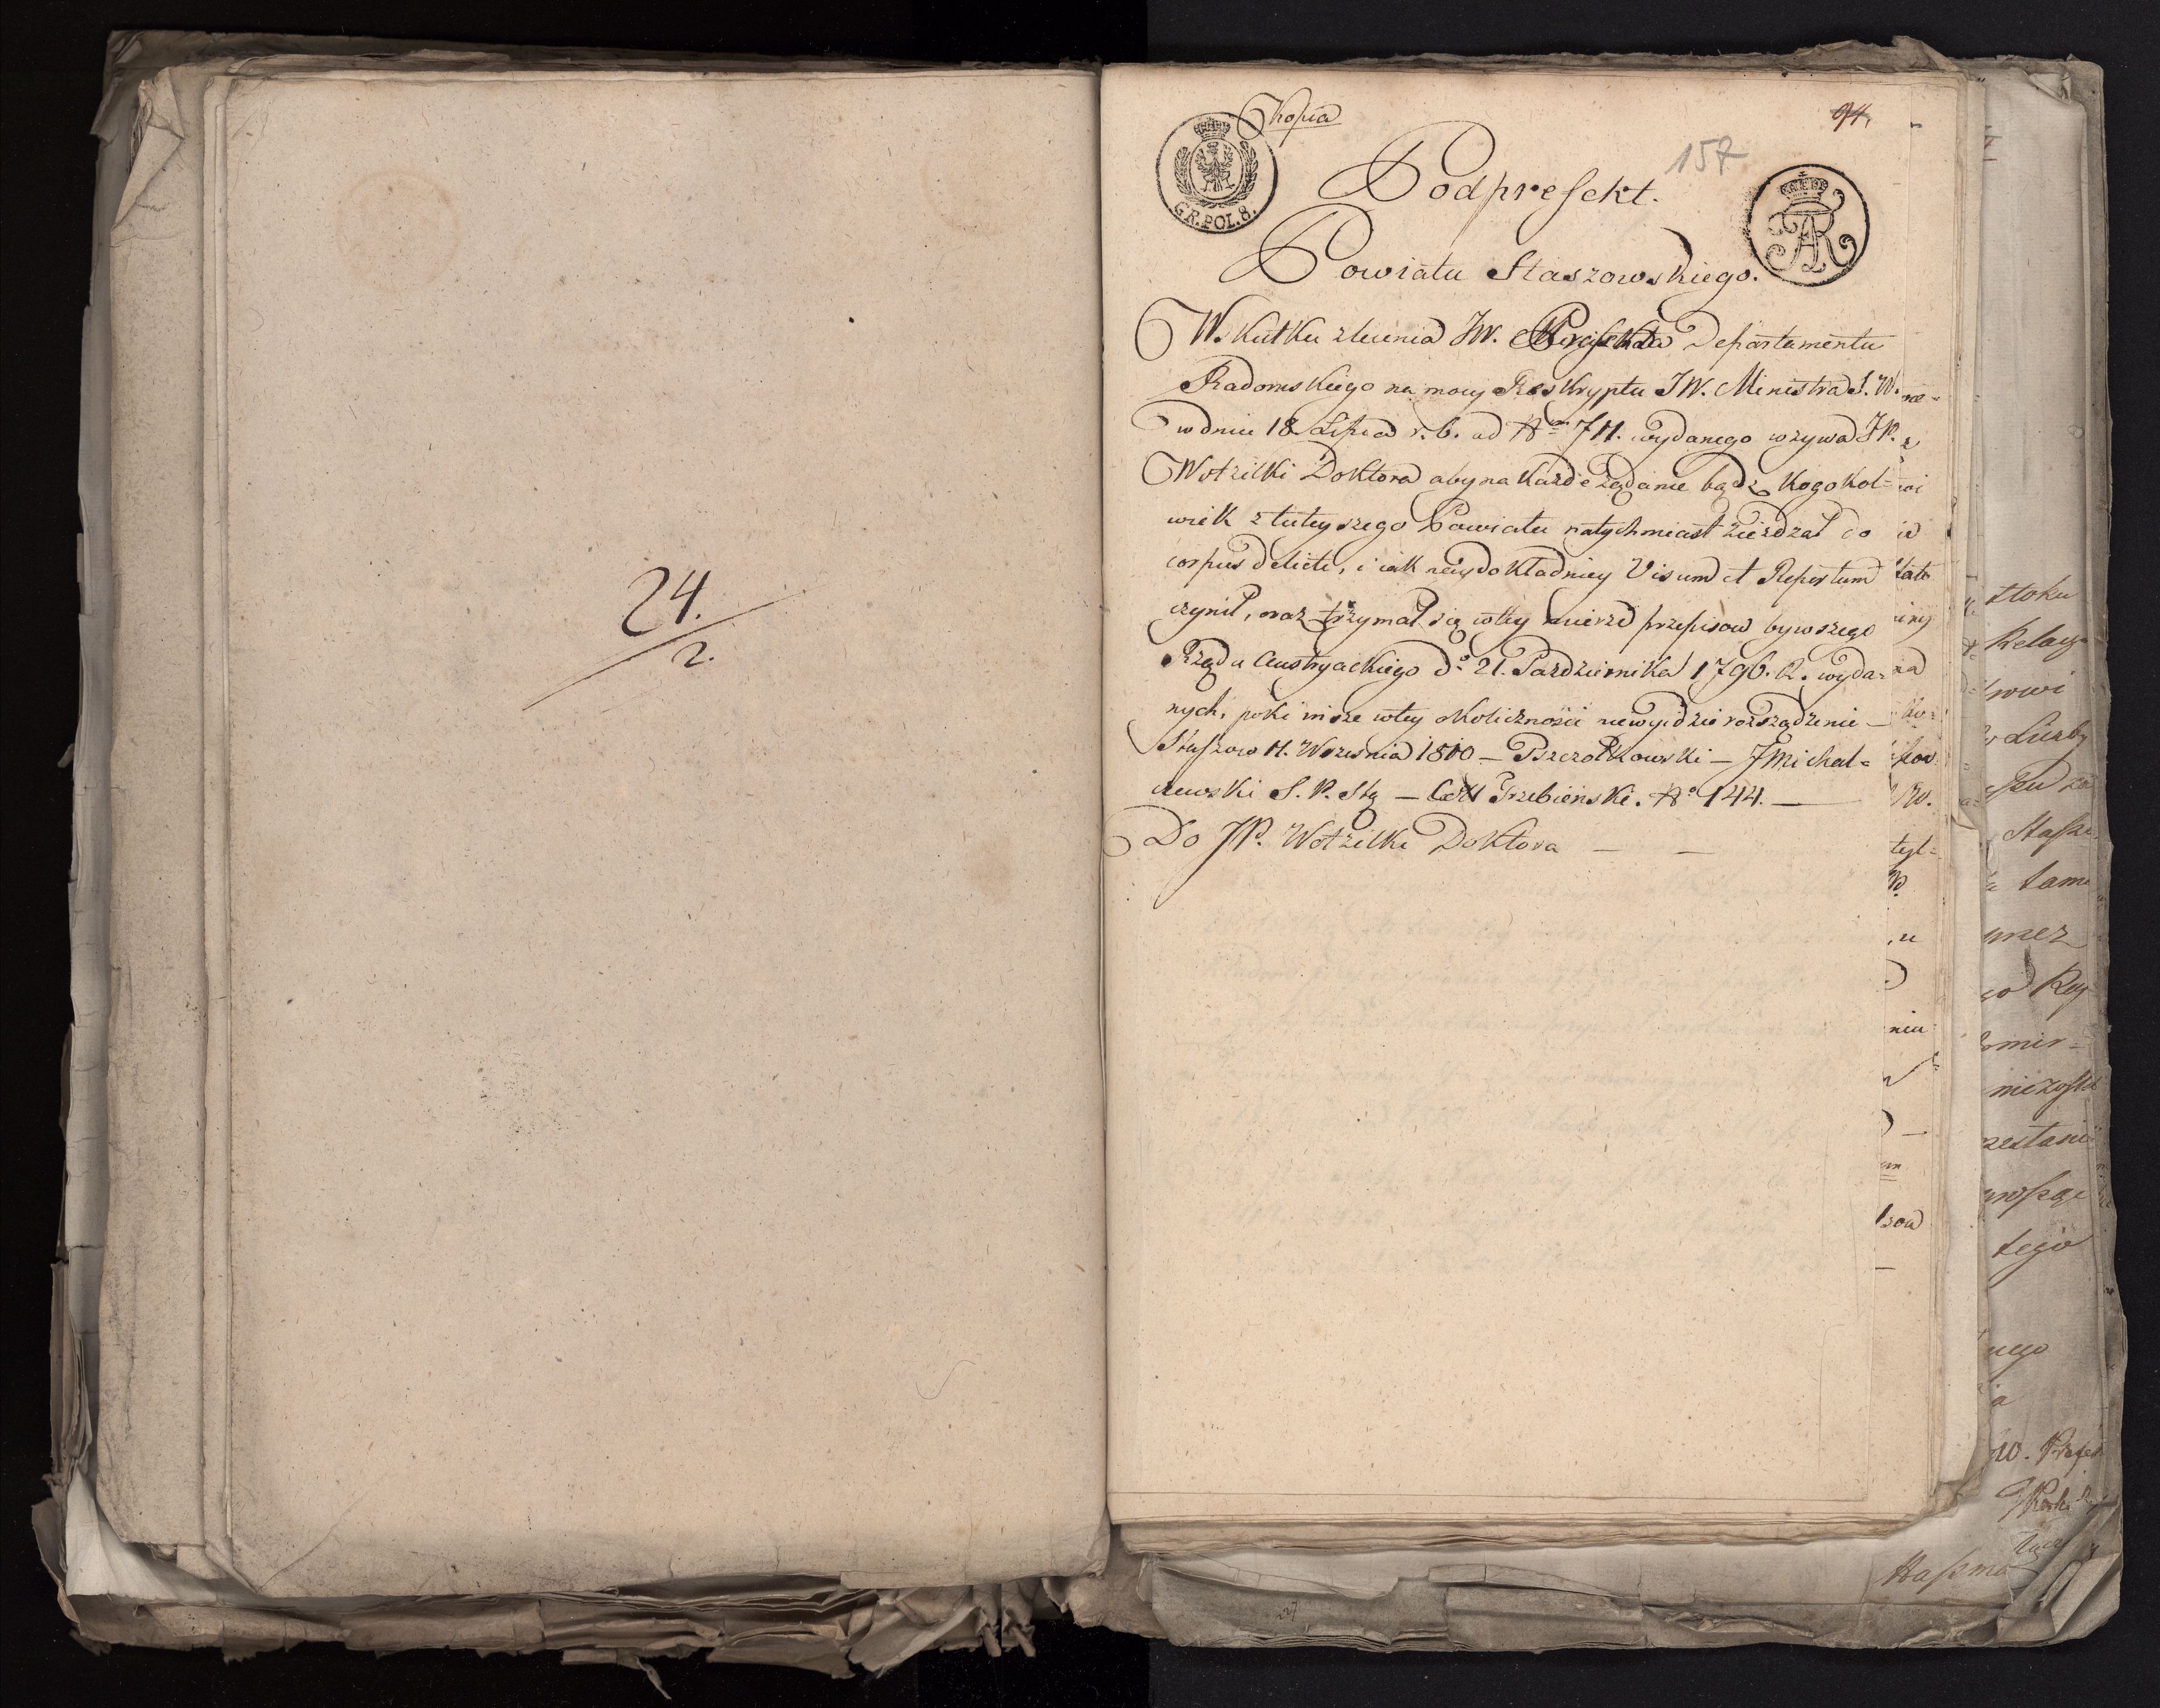 24.
2.
Kopia
94.
157
GR.POL.8.
Podprefekt.
Powiatu Staszowskiego.
W. Kutku zlecenia JW. Prefekta Departamentu
Radomskiego na mocy Reskryptu JW. Ministra S. W.
w dniu 18 Lipca r. b. ad N 711. wydanego wzywa JP.
Wotzilki Doktora aby na każde żądanie bądź kogokol-
wiek z tuteyszego Powiatu natychmiast zieżdzał do
corpus delicti, i iak naydokładniey Visum et Repertum
czynił, oraz trzymał się w tey mierze przepisow bywszego
Rządu Austryackiego d. 21. Pazdziernika 1796. R. wyda-
nych, poki insze w tey okoliczności niewyidzie rozrządzenie —
Staszow 11. Września 1810 — Pszczołkowski — J Michal-
czewski S. P. Stą — Trzebienski. N 144. —
Do JP. Wotzilki Doktora — —
ztoku
Relacy
tame
tego
nego